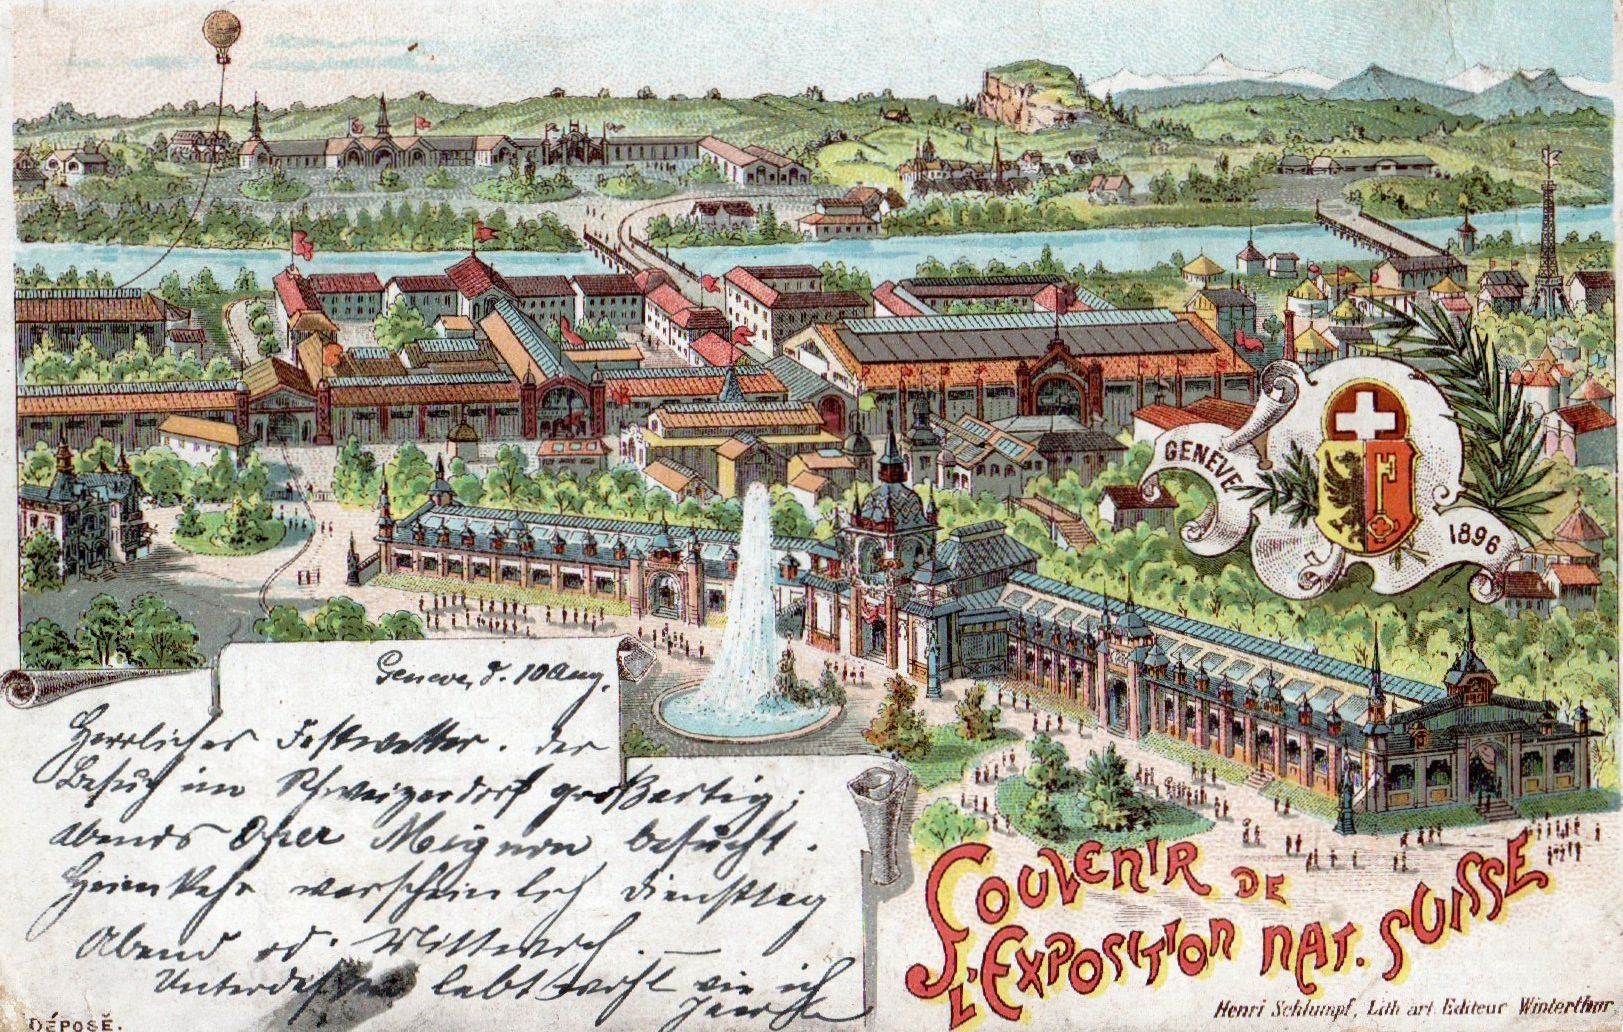 GENÈVE
1896
Geneve, d. 10 Aug.
Herrliches Festwetter. der
Besuch im Schweizerdorf großartig;
abends Oper Mignon besucht.
Heimkehr warscheinlich Dienstag
Abend od. Mittwoch. —
Unterdessen lebt wohl wie ich
SOUVENIR DE
L'EXPOSITION NAT. SUISSE
DÉPOSÉ.
Henri Schlumpf, Lith art Editeur Winterthur